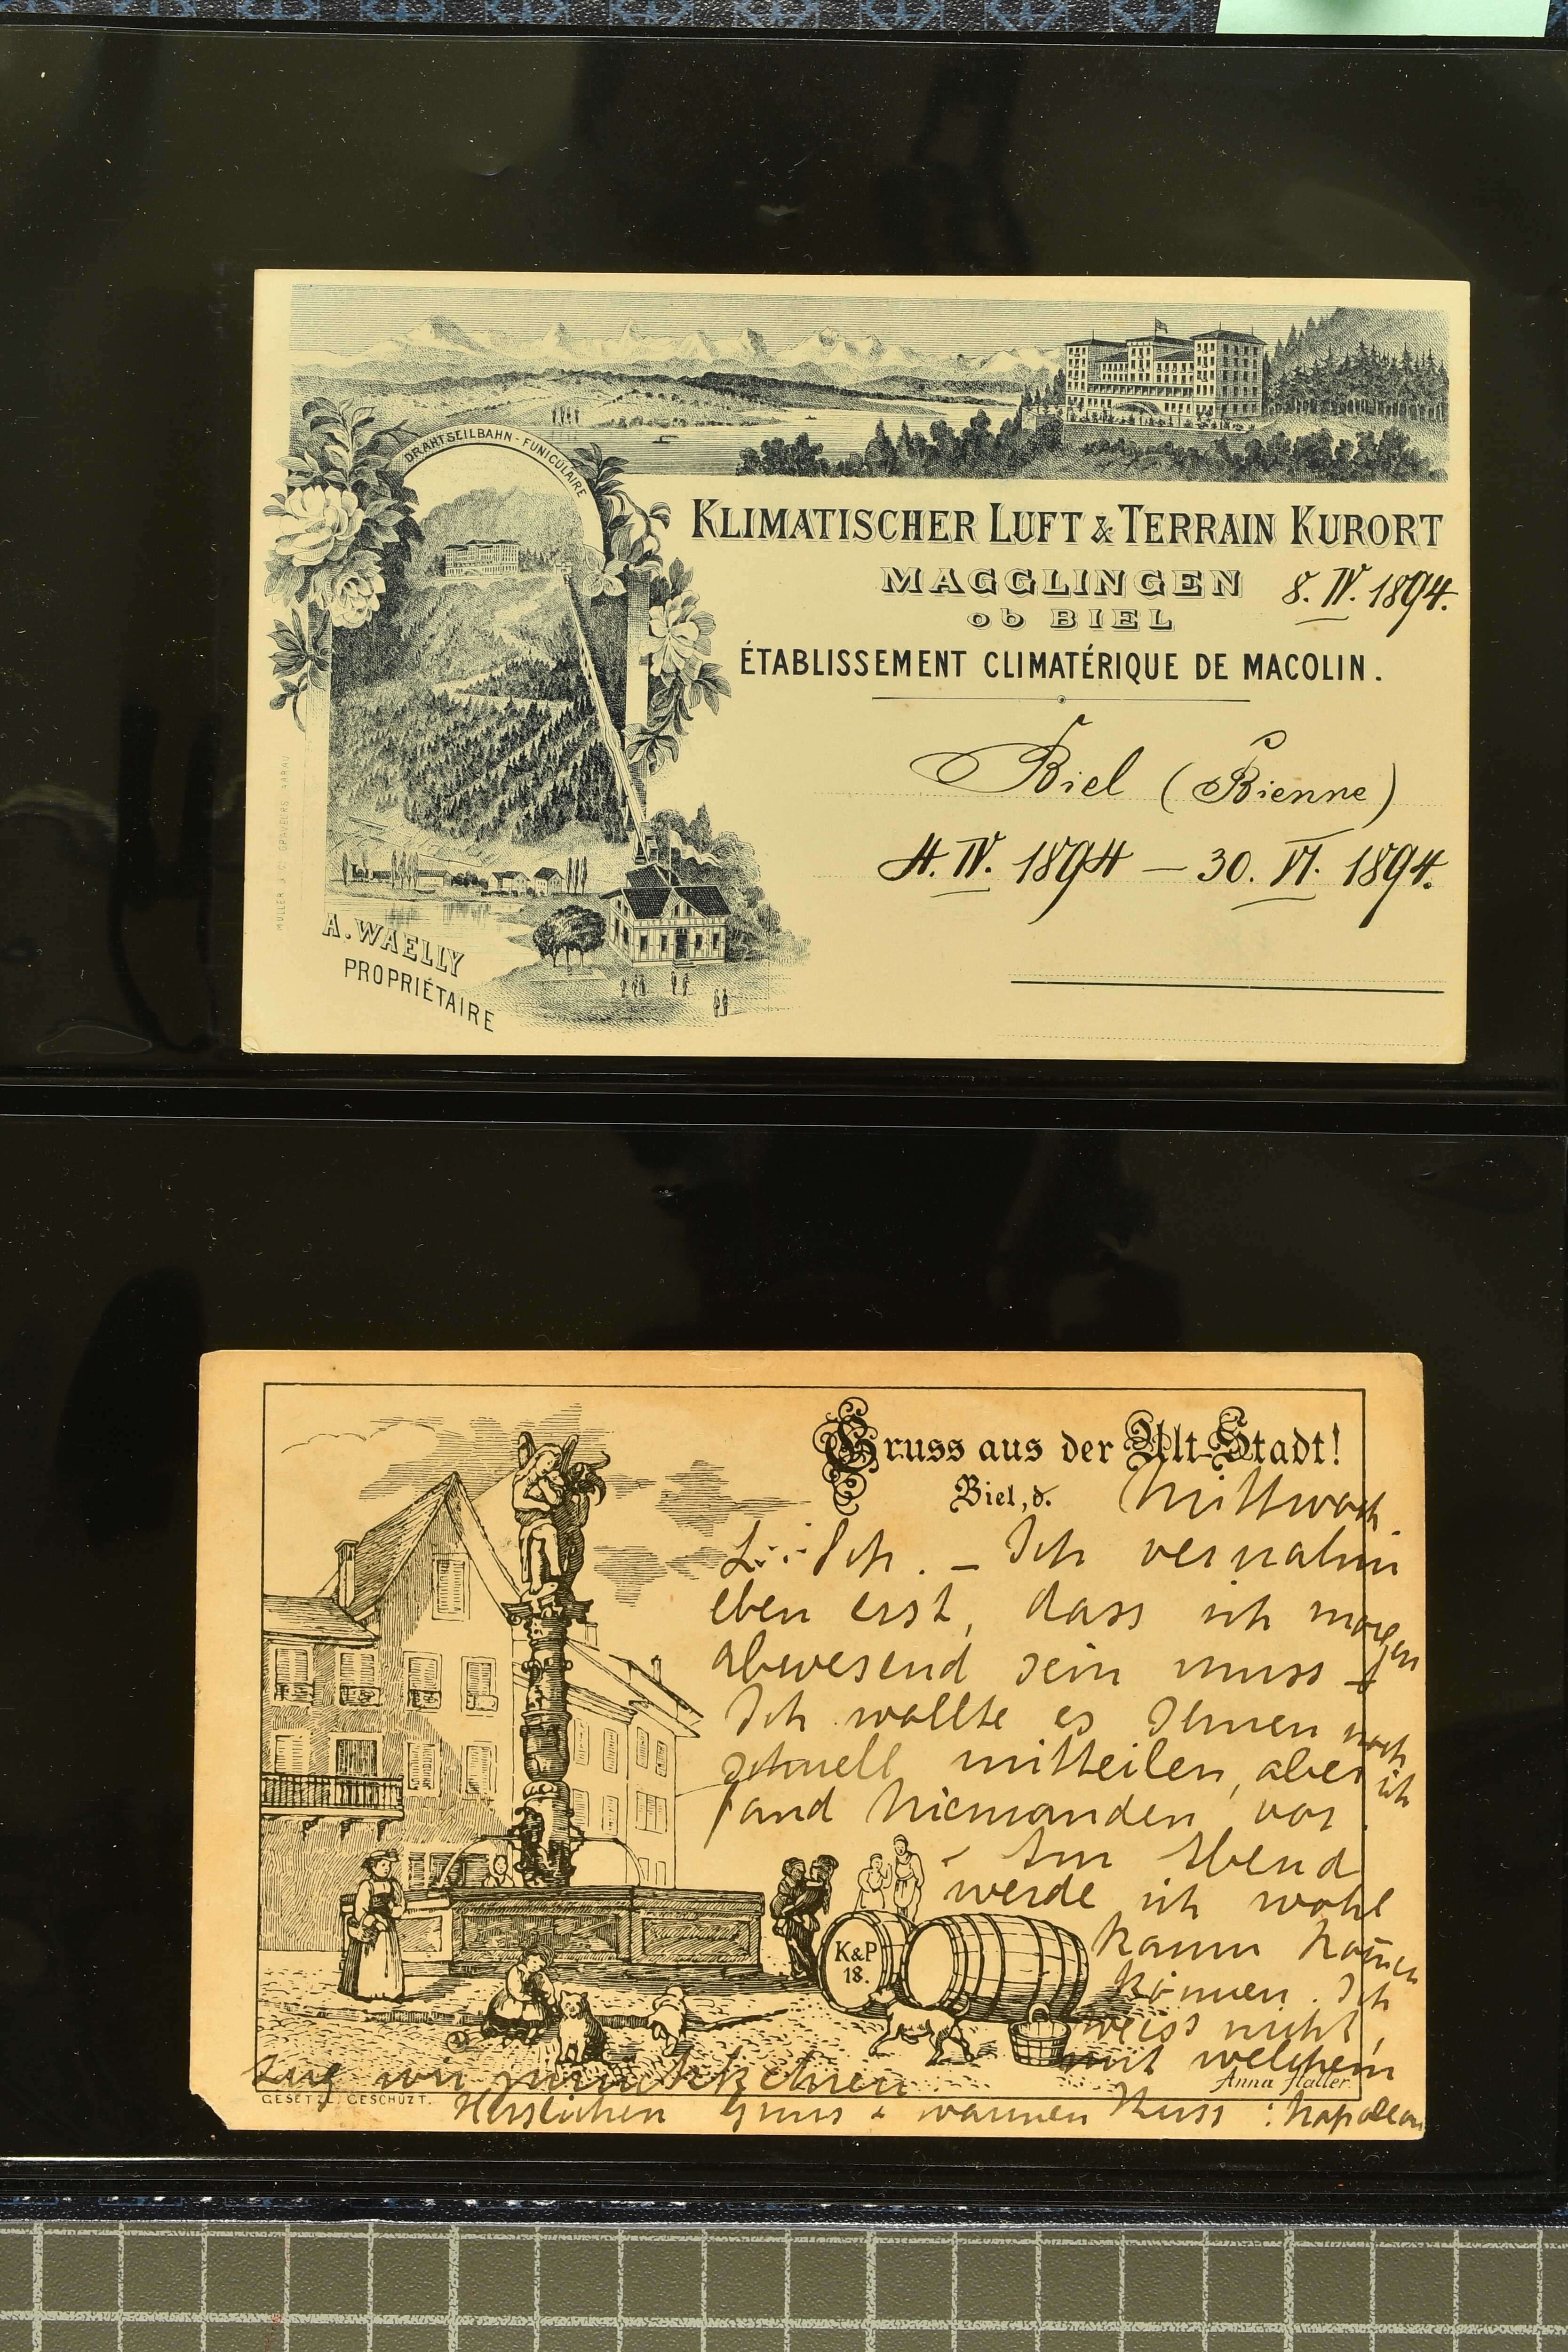 DRAHTSEILBAHN - FUNICULAIRE
KLIMATISCHER LUFT & TERRAIN KURORT
MAGGLINGEN 8. IV. 1894.
ob BIEL
ÉTABLISSEMENT CLIMATÉRIQUE DE MACOLIN.
Biel (Bienne)
4. IV. 1894 — 30. VI. 1894.
A. WAELLY
PROPRIÉTAIRE
MÜLLER & CIE GRAVEURS AARAU
Gruss aus der Alt-Stadt!
Biel, d. Mittwoch
Ich vernahm
eben erst, dass ich morgen
abwesend sein muss
Ich wollte es Ihnen noch
schnell mitteilen, aber ich
fand Niemanden vor.
- Am Abend
werde ich wohl
kaum kommen
können. Ich
weiss nicht,
mit welchem
Zug wir zurückkehren
K&P
18.
Anna Haller.
GESETZL. GESCHÜZT.
Herzlichen Gruss + warmen Kuss : Napoleon